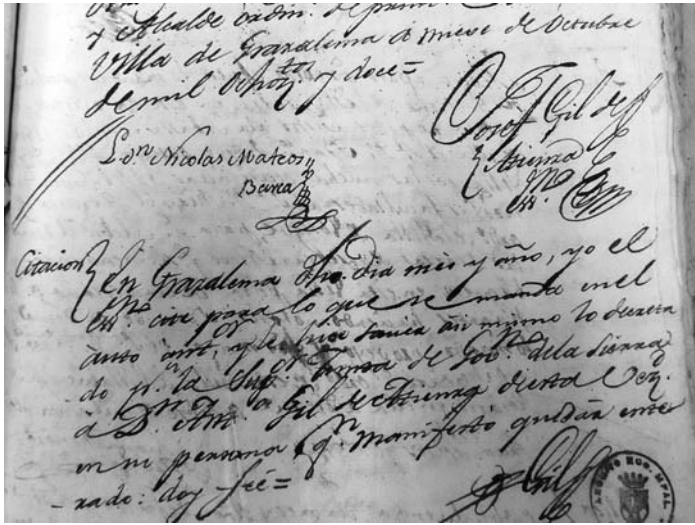 y Alcalde ordin.º de prim.
Villa de Grazalema á nueve de Octubre
de mil Ochoz.tos y doce=
L.do Dn Nicolas Mateos
Barea
Josef Gil de
Atienza
Citacion
En Grazalema dho. dia mes y año, yo el
cité para lo que se manda en el
auto ant.or, y le hice saver asi mismo lo decreta
do p.r la Sup.or de Gov.no de la Sierra
á Dn Ant.o Gil de Atienza de esta Vez.
en su persona q.n manifestó quedar ente
-rado: doy feé=
Gil
ARCHIVO HCO. MPAL